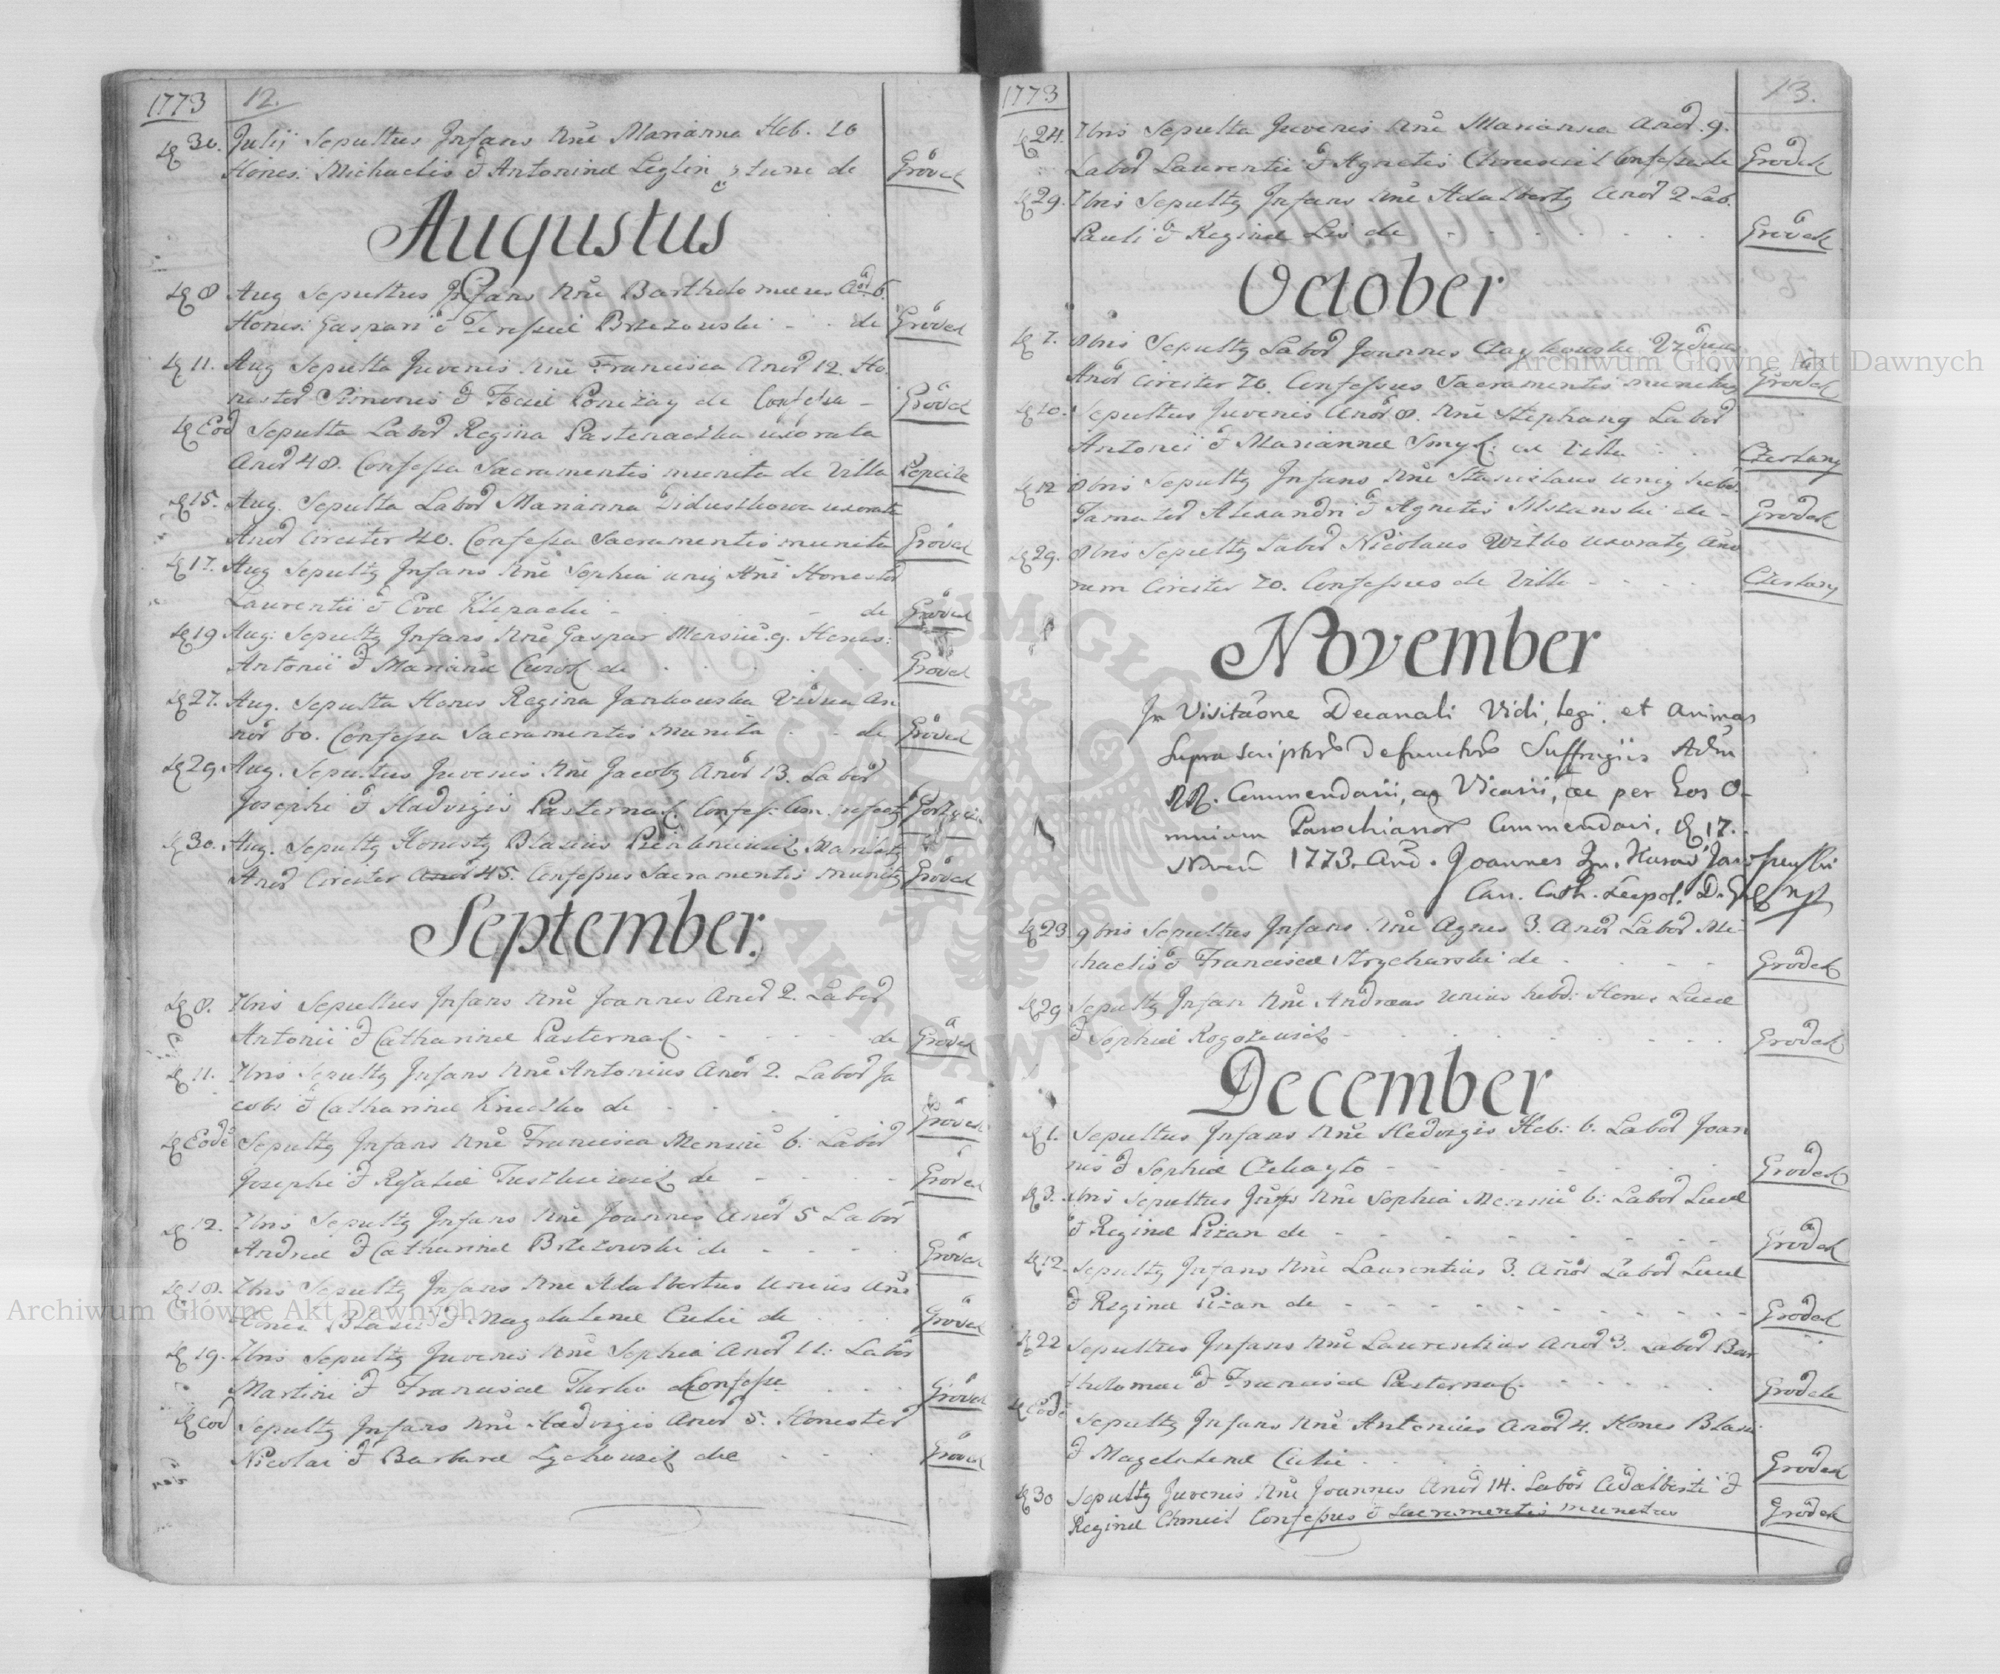 1773 12.
30. Julij Sepultus Infans Nne Marianna Heb. 10
Hones: Michaelis & Antoninæ Leglin de Grodek
Augustus
8 Aug Sepultus Infans Nne Bartholomæus 6.
Hones: Gaspari & Teresiæ Brzezowski - - de Grodek
11. Aug Sepulta Juvenis Nne Francisca Anor 12. Ho
nestor Simonis & de Confessa - Grodek
Eod Sepulta Labor Regina Pasternaczka uxorata
Anor 48. Confessa Sacramentis munita de Villa
15. Aug. Sepulta Labor Marianna uxorata
Anor Circiter 40. Confessa Sacramentis munita Grodek
17. Aug Sepultq Infans Nne Sophia unig Ani Honestor
Laurentii & Evæ Klepacki - - de Grodek
19 Aug: Sepultq Infans Nne Gaspar Mensiu. 9. Hones:
Antonii & Mariañæ de Grodek
27. Aug. Sepulta Hones Regina Jankowska Vidua An
nor 60. Confessa Sacramentis Munita - - de Grodek
29 Aug. Sepultus Juvenis Nne Jacobq Anor 13. Labor
Josephi & Hadvigis Pasternak
30. Aug. Sepultq Honestq Blasius
Anor Circiter Anor 45. Confessus Sacramentis munitq Grodek
September.
8. 7bris Sepultus Infans Nne Joannes Anor 2. Labor
Antonii & Catharinæ Pasternak - - de Grodek
11. 7bris Sepultq Infans Nne Antonius Anor 2. Labor Ja
cobi & Catharinæ de Grodek
Eode Sepultq Infans Nne Francisca Mensiu 6: Labor
Josephi & Rosaliæ de Grodek
12. 7bris Sepultq Infans Nne Joannes Anor 5 Labor
Andreæ & Catharinæ Brzezowski de Grodek
18. 7bris Sepultq Infans Nne Adalbertus Unius Ani
Hones Blasii & Magdalenæ Culic de Grodek
19. 7bris Sepultq Juvenis Nne Sophia Anor 11: Labor
Martini & Franciscæ Turko Confessa Grodek
eod Sepultq Infans Nne Hadvigis Anor 5. Honestor
Nicolai & Barbaræ de Grodek
1773 13.
24. 7bris Sepulta Juvenis Nne Marianna Anor. 9.
Labor Laurentii & Agnetis Chmiel Confessa de Grodek
29. 7bris Sepultq Infans Nne Adalbertq Anor 2 Lab.
Pauli & Reginæ Lis de Grodek
October
7. 8bris Sepultq Labor Joannes Viduus
Anor Circiter 70. Confessus Sacramentis munitus Grodek
10. Sepultus Juvenis Anor 8. Nne Stephanq Labor
Antonii & Mariannæ Smyk: ex Villa Czerlany
12 8bris Sepultq Infans Nne Stanislaus unig hebd.
Famator Alexandri & Agnetis de - Grodek
29. 8bris Sepultq Labor Nicolaus Witko uxoratq Ano
rum Circiter 70. Confessus de Villa - - Czerlany
November
In Visitaõne Decanali Vidi, legi, et animas
suprascriptor defunctor Suffragiis Adm
RR. Commendarii, ac Vicarii, ac per Eos O-
mnium Parochianor Commendavi, 17.
Novem 1773. Ano. Joannes
Can. Cath. Leopol. D.
23. 9bris Sepultus Infans Nne Agnes 3. Anor Labor Mi
chaelis & Franciscæ Strycharski de Grodek
29 Sepultq Infan Nne Andreas Unius hebd: Hones Lucæ
& Sophiæ Grodek
December
1. Sepultus Infans Nne Hedvigis Heb: 6. Labor Joan
nis & Sophiæ Grodek
3. Xbris Sepultus Infans Nne Sophia Mensiu 6: Labor Lucæ
& Reginæ Pizan de Grodek
12. Sepultq Infans Nne Laurentius 3. Anor Labor Lucæ
& Reginæ Pizan de Grodek
22 Sepultus Infans Nne Laurentius Anor 3. Labor Bar
tholomæi & Franciscæ Pasternak Grodek
Eode Sepultq Infans Nne Antonius Anor 4. Hones Blasii
& Magdalenæ Culic Grodek
30 Sepultq Juvenis Nne Joannes Anor 14. Labor Adalberti &
Reginæ Chmiel Confessus & Sacramentis munitus Grodek
Archiwum Główne Akt Dawnych
Archiwum Główne Akt Dawnych
ARCHIWUM GŁÓWNE AKT DAWNYCH